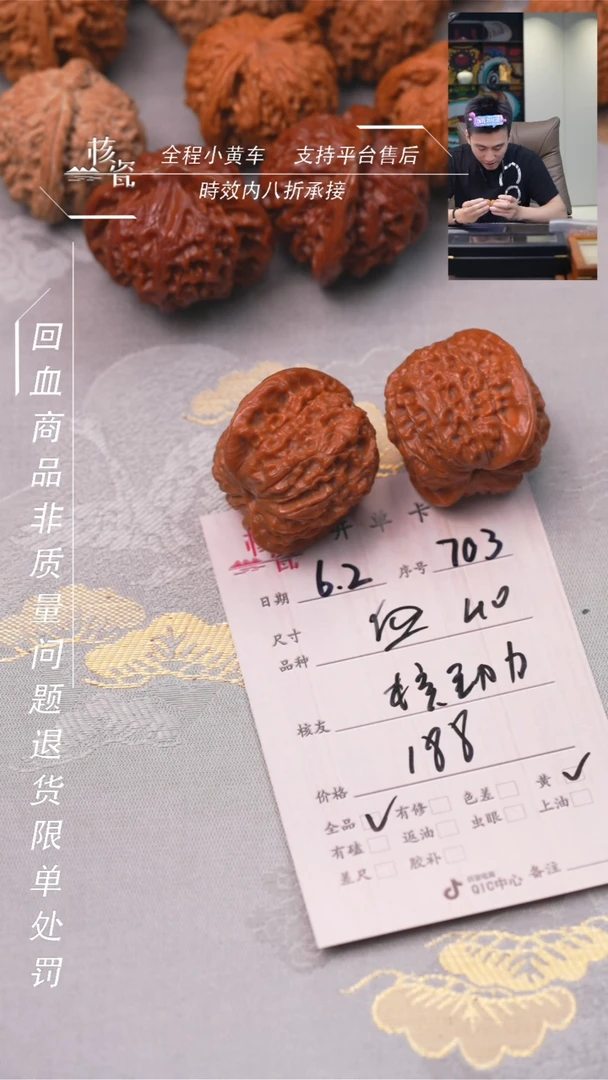 核瓷
全程小黄车 支持平台售后
時效内八折承接
回血商品非质量问题退货限单处罚
单卡
日期 6.2 序号 703
尺寸 40
品种
核友 核动力
价格 188
全品 ✓ 有修 色差 黄 ✓
有磕 返油 虫眼 上油
差尺 胶补
QIC中心 备注